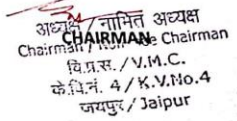 अध्यक्ष / नामित अध्यक्ष
CHAIRMAN
Chairman / Nominee Chairman
वि.प्र.स. / V.M.C.
के.वि.नं. 4 / K.V.No.4
जयपुर / Jaipur